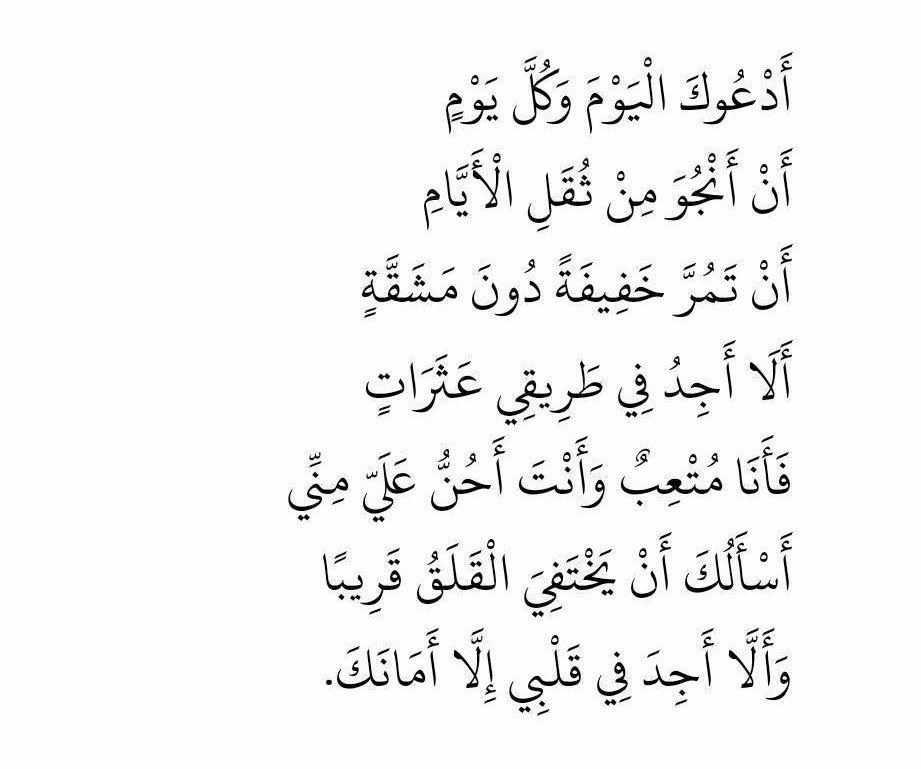 أَدْعُوكَ الْيَوْمَ وَكُلَّ يَوْمٍ
أَنْ أَنْجُوَ مِنْ ثُقَلِ الْأَيَّامِ
أَنْ تَمُرَّ خَفِيفَةً دُونَ مَشَقَّةٍ
أَلَا أَجِدُ فِي طَرِيقِي عَثَرَاتٍ
فَأَنَا مُتْعِبٌ وَأَنْتَ أَحُنُّ عَلَيّ مِنِّي
أَسْأَلُكَ أَنْ يَخْتَفِيَ الْقَلَقُ قَرِيبًا
وَأَلَّا أَجِدَ فِي قَلْبِي إِلَّا أَمَانَكَ.